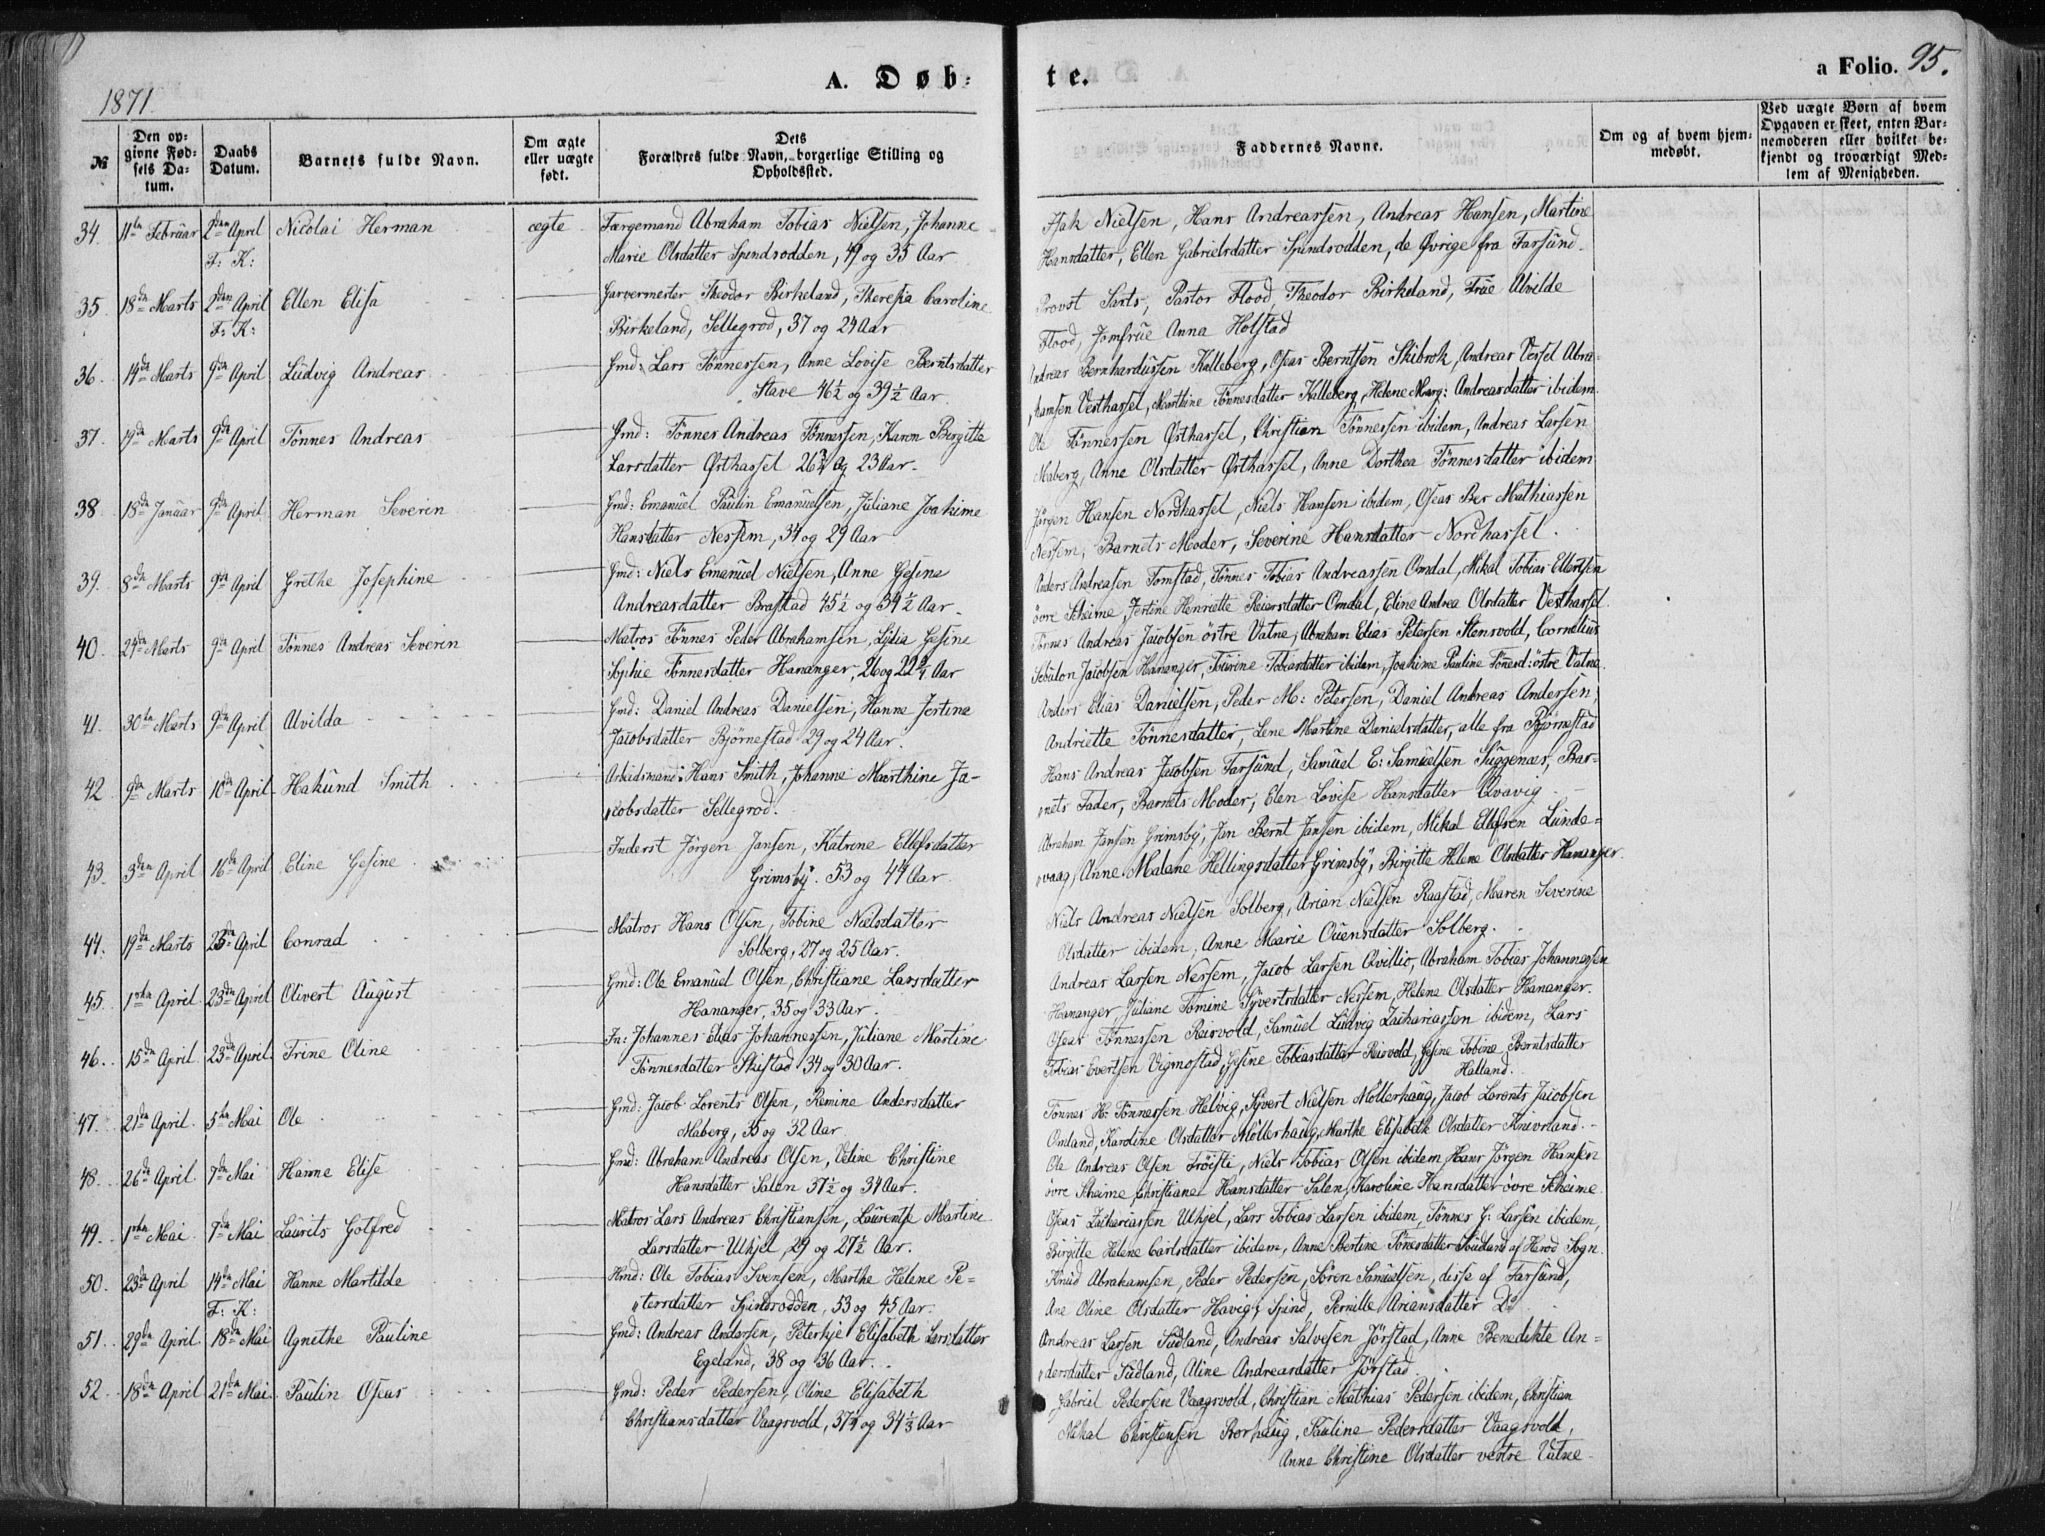 A. Døb-
te.
a Folio. 95.
1871.
№
Den op-
givne Fød-
sels Da-
tum.
Daabs
Datum.
Barnets fulde Navn.
Om ægte
eller uægte
født.
Dets
Forældres fulde Navn, borgerlige Stilling og
Opholdssted.
Faddernes Navne.
Om og af hvem hjem-
medøbt.
Ved uægte Børn af hvem
Opgaven er skeet, enten Bar-
nemoderen eller hvilket be-
kjendt og troværdigt Med-
lem af Menigheden.
34. 11te Februar 2den April Nicolai Herman ægte Færgemand Abraham Tobias Nielsen, Johanne
F: K: Marie Olsdatter Spindsodden, 49 og 35 Aar
Isak Nielsen, Hans Andreassen, Andreas Hansen, Martine
Hansdatter, Ellen Gabrielsdatter Spindsodden, de Øvrige fra Farsund
35. 18de Marts 2den April Ellen Elisa Garvermester Theodor Birkeland, Theresia Caroline
F: K: Birkeland, Sellegrod, 37 og 24 Aar
Provst Sarts, Pastor Flood, Theodor Birkeland, Frue Alvilde
Flood, Jomfrue Anna Holstad
36. 14de Marts 9de April Ludvig Andreas Gmd: Lars Tønnessen, Anne Lovise Berntsdatter
Stave 46½ og 39½ Aar.
Andreas Bernhardussen Kalleberg, Oseas Berntsen Skibrok, Andreas Vessel Abra-
hamsen Vesthassel, Marthine Tønnesdatter Kalleberg, Helene Marg: Andreasdatter ibidem
37. 14de Marts 9de April Tønnes Andreas Gmd: Tønnes Andreas Tønnessen, Karen Birgitte
Larsdatter Østhassel 26¾ og 23 Aar.
Ole Tønnessen Østhassel, Christian Tønnessen ibidem, Andreas Larsen
Maberg, Anne Olsdatter Østhassel, Anne Dorthea Tønnesdatter ibidem
38. 18de Januar 9de April Herman Severin Gmd: Emanuel Paulin Emanuelsen, Juliane Joakime
Hansdatter Nessem, 34 og 29 Aar
Jørgen Hansen Nordhassel, Niels Hansen ibidem, Oseas Ber Mathiassen
Nessem, Barnets Moder, Severine Hansdatter Nordhassel.
39. 8de Marts 9de April Grethe Josephine Gmd: Niels Emanuel Nielsen, Anne Gesine
Andreasdatter Brastad 45½ og 34½ Aar.
Anders Andreasen Tomstad, Tønnes Tobias Andreassen Omdal, Mikal Tobias Ellertsen
övre Skeime, Jertine Henriette Reiersdatter Omdal, Eline Andrea Olsdatter Vesthassel.
40. 24de Marts 9de April Tønnes Andreas Severin Matros Tønnes Peder Abrahamsen, Lydia Gesine
Sophie Tønnesdatter Hananger, 26 og 22¾ Aar
Tønnes Andreas Jacobsen östre Vatne, Abraham Elias Petersen Stensvold, Cornelius
Sebulon Jacobsen Hananger, Tourine Tobiasdatter ibidem, Joakime Pauline Tönesd: östre Vatne.
41. 30te Marts 9de April Alvilda Gmd: Daniel Andreas Danielsen, Hanne Jertine
Jacobsdatter Bjørnestad 29 og 24 Aar.
Anders Elias Danielsen, Peder M: Petersen, Daniel Andreas Andersen,
Andriette Tønnesdatter, Lene Martine Danielsdatter, alle fra Bjørnestad
42. 9de Marts 10de April Hakund Smith Arbeidsmand: Hans Smith, Johanne Marthine Ja-
cobsdatter Sellegrod.
Hans Andreas Jacobsen Farsund, Samuel E: Samuelsen Huggenæs, Bar-
nets Fader, Barnets Moder, Elen Lovise Hansdatter Qvavig
43. 3den April 16de April Eline Gesine Inderst Jørgen Jansen, Katrine Ellefsdatter
Grimsby. 53 og 44 Aar
Abraham Jansen Grimsby, Jan Bernt Jansen ibidem, Mikal Ellefsen Lunde-
vaag, Anne Malene Hellingsdatter Grimsby, Birgitte Helene Olsdatter Hananger
44. 19de Marts 23de April Conrad Matros Hans Olsen, Tobine Nielsdatter
Solberg, 27 og 25 Aar.
Niels Andreas Nielsen Solberg, Arian Nielsen Raastad, Maren Severine
Olsdatter ibidem, Anne Marie Ouensdatter Solberg.
45. 1ste April 23de April Olivert August Gmd: Ole Emanuel Olsen, Christiane Larsdatter
Hananger, 35 og 33 Aar.
Andreas Larsen Nessem, Jacob Larsen Qvillio, Abraham Tobias Johannessen
Hananger, Juliane Tomine Syvertsdatter Nessem, Helene Olsdatter Hananger.
46. 15de April 23de April Trine Oline In: Johannes Elias Johannessen, Juliane Martine
Tönnesdatter Skistad 34 og 30 Aar.
Oseas Tønnessen Reisvold, Samuel Ludvig Zachariassen ibidem, Lars
Tobias Evertsen Vigmostad, Gesine Tobiasdatter Reisvold, Gesine Tobine Berntsdatter
Halland.
47. 21de April 5te Mai Ole Gmd: Jacob Lorents Olsen, Remine Andersdatter
Maberg, 35 og 32 Aar.
Tønnes H: Tønnessen Helvig, Syvert Nielsen Möllerhaug, Jacob Lorents Jacobsen
Omland, Karoline Olsdatter Möllerhaug, Marthe Elisabeth Olsdatter Knivsland.
48. 26de April 7de Mai Hanne Elise Gmd: Abraham Andreas Olsen, Veline Christine
Hansdatter Salen 37½ og 34 Aar.
Ole Andreas Olsen Fröisti, Niels Tobias Olsen ibidem Hans Jörgen Hansen
övre Skeime Christiane Hansdatter Salen, Karoline Hansdatter övre Skeime
49. 1ste Mai 7de Mai Laurits Gotfred Matros Lars Andreas Christiansen, Laurentse Martine
Larsdatter Ulkjel, 29 og 27½ Aar.
Oseas Zachariassen Ulkjel, Lars Tobias Larsen ibidem, Tønnes G: Larsen ibidem,
Birgitte Helene Carlsdatter ibidem, Anne Bertine Tönesdatter Sudland af Herod Sogn.
50. 23de April 14de Mai Hanne Martilde Hmd: Ole Tobias Svensen, Marthe Helene Pe-
F: K: tersdatter Spindsodden, 53 og 45 Aar.
Knud Abrahamsen, Peder Pedersen, Sören Samuelsen, disse af Farsund,
Ane Oline Olsdatter Havig, Spind, Pernille Ariansdatter Do
51. 29de April 18de Mai Agnethe Pauline Gmd: Andreas Andersen, Peterkje Elisabeth Larsdatter
Egeland, 38 og 36 Aar.
Andreas Larsen Sudland, Andreas Salvesen Jörstad, Anne Benedikte An-
dersdatter Sudland, Aline Andreasdatter Jörstad
52. 18de April 21de Mai Paulin Oseas Gmd: Peder Pedersen, Oline Elisabeth
Christiansdatter Vaagsvold, 37¼ og 34⅓ Aar
Gabriel Pedersen Vaagsvold, Christian Mathias Pedersen ibidem, Christian
Mikal Christensen Borhaug, Pauline Pedersdatter Vaagsvold,
Anne Christine Olsdatter vestre Vatne